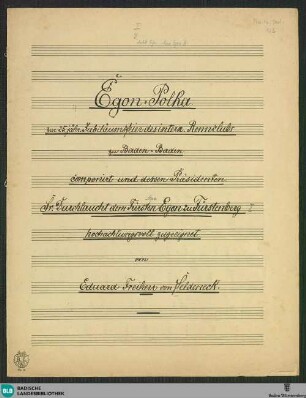 Egon-Polka
zur 25 jähr. Jubiläumsfeier des intern. Rennclubs
zu Baden-Baden
componirt und dessen Präsidenten
Sr. Durchlaucht dem Fürsten Egon zu Fürstenberg
hochachtungsvoll zugeeignet
von
Eduard Freiherr von
BLB BADISCHE
LANDESBIBLIOTHEK
Baden-Württemberg